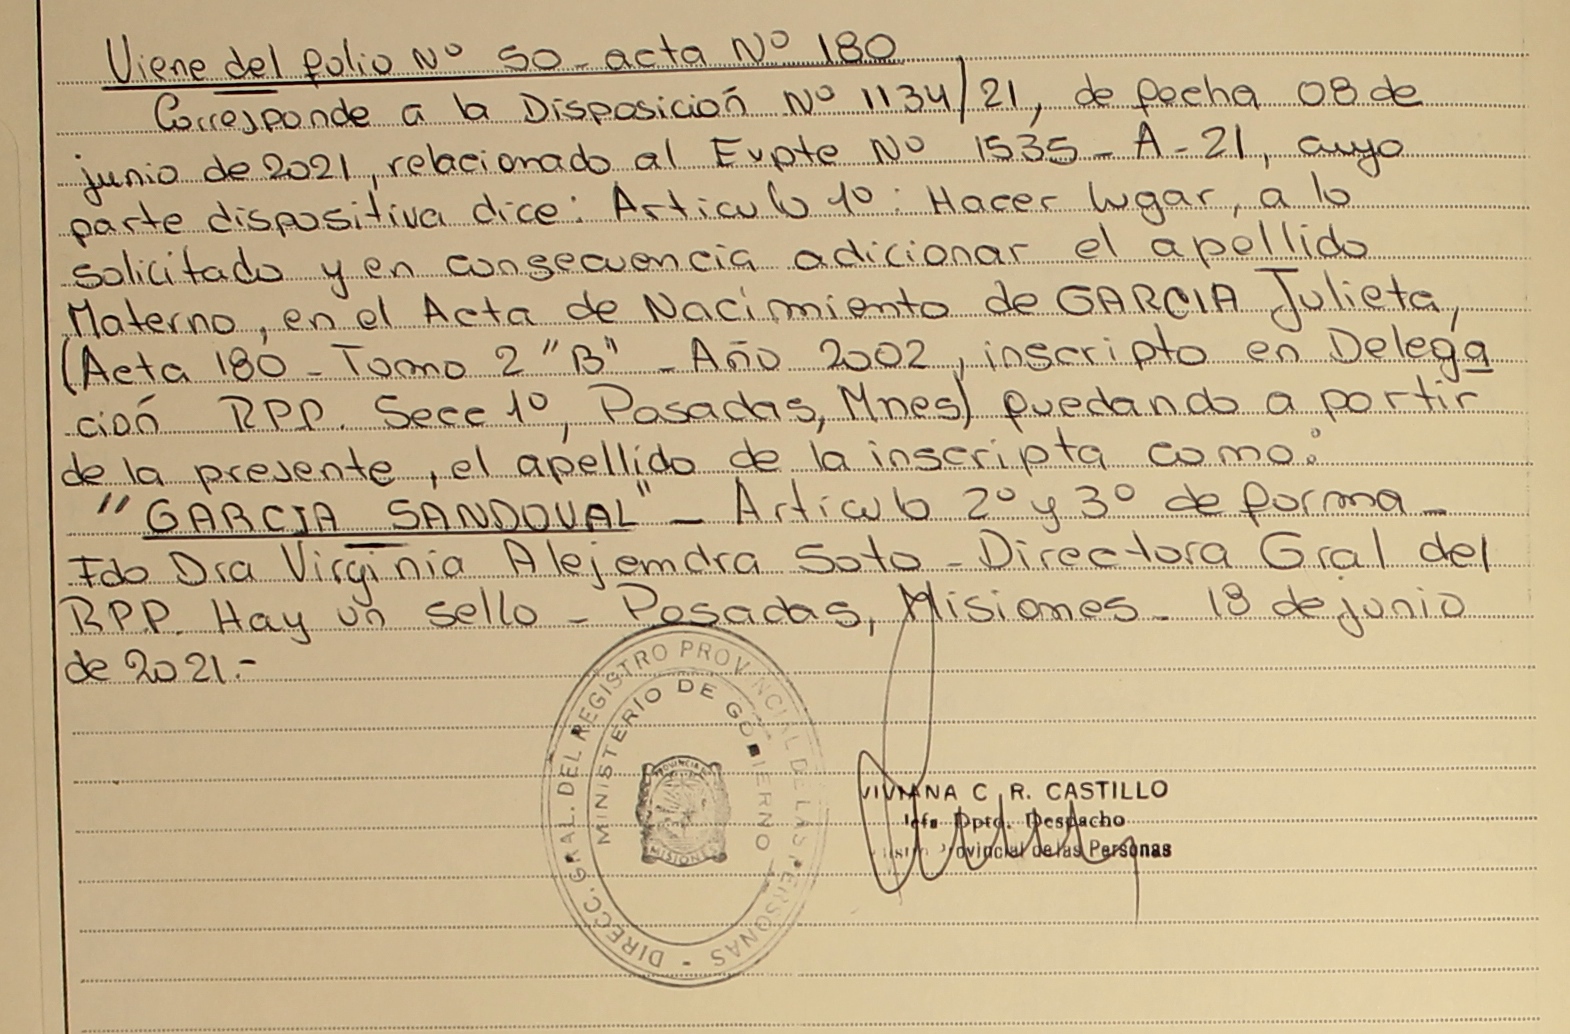 Viene del folio Nº 50 - acta Nº 180
Corresponde a la Disposición Nº 1134/21, de fecha 08 de
junio de 2021, relacionado al Expte Nº 1535 - A - 21, cuyo
parte dispositiva dice: Articulo 1º: Hacer lugar, a lo
solicitado y en consecuencia adicionar el apellido
Materno, en el Acta de Nacimiento de GARCIA Julieta,
(Acta 180 - Tomo 2 "B" - Año 2002, inscripto en Delega
ción RPP. Secc 1º, Posadas, Mnes) quedando a partir
de la presente, el apellido de la inscripta como:
"GARCIA SANDOVAL" - Articulo 2º y 3º de forma -
Fdo Dra Virginia Alejandra Soto - Directora Gral del
RPP. Hay un sello - Posadas, Misiones - 18 de junio
de 2021.-
DIRECC. GRAL. DEL REGISTRO PROVINCIAL DE LAS PERSONAS -
MINISTERIO DE GOBIERNO
PROVINCIA
MISIONES
VIVIANA C. R. CASTILLO
Jefa Dpto. Despacho
Provincial de las Personas